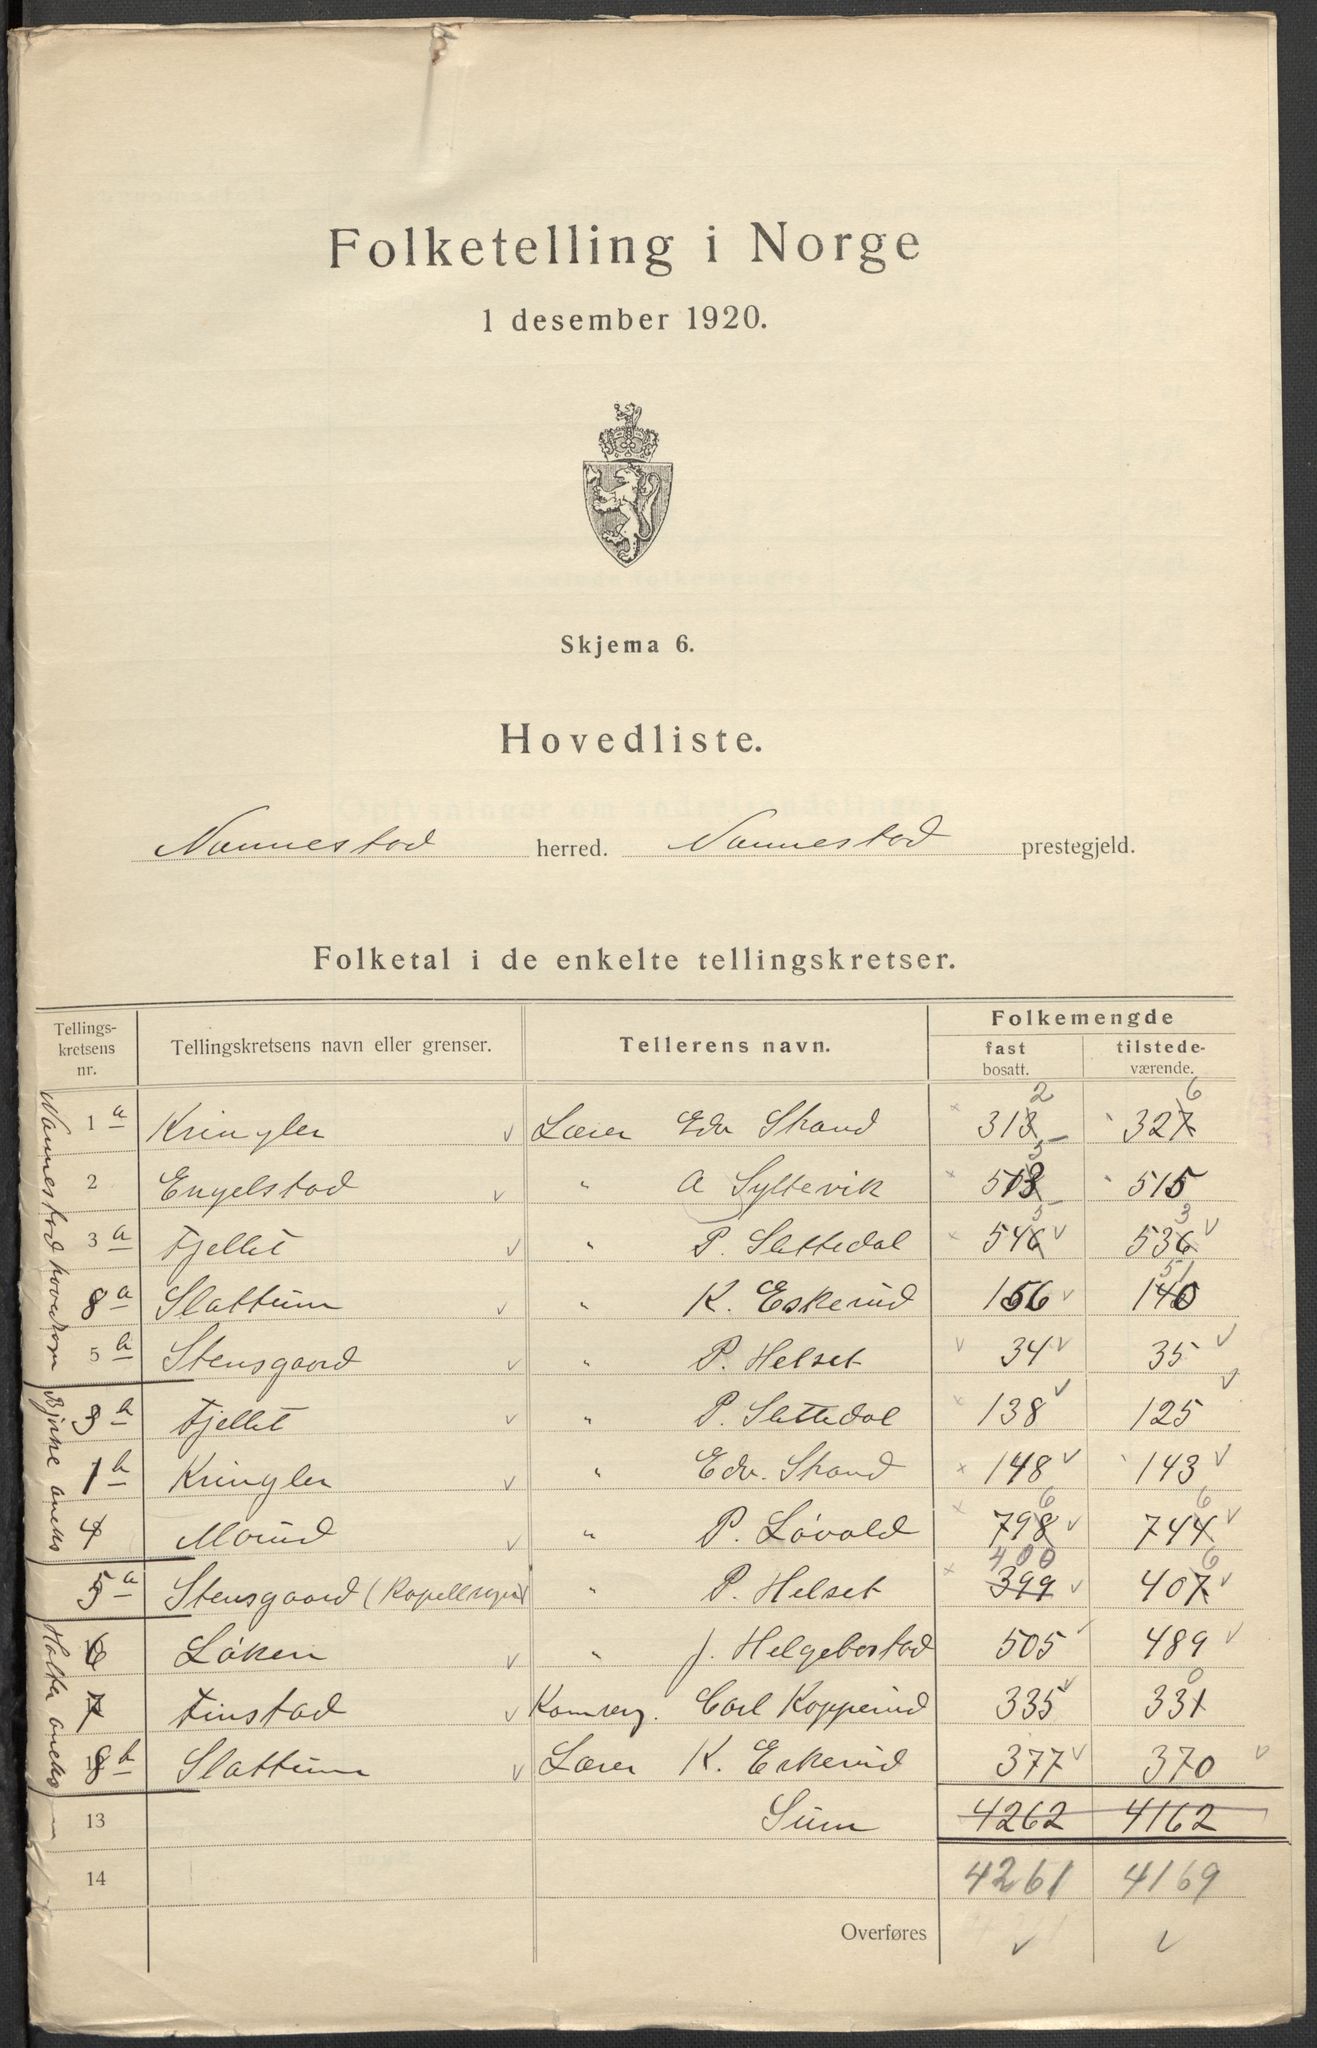 Folketelling i Norge
1 desember 1920.
Skjema 6.
Hovedliste.
Nannestad herred. Nannestad prestegjeld.
Folketal i de enkelte tellingskretser.
Tellings-kretsens nr. Tellingskretsens navn eller grenser. Tellerens navn. Folkemengde
fast bosatt. tilstede-værende.
Nannestad hovedsogn
1 a Kringler v Lærer Edv Strand 313 2 327 6
2 Engelstad v " A Syltevik 513 3 515
3 a Fjellet v " P. Slettedal 546 5 v 536 3 v
8 a Slattum v " K. Eskerud 156 v 140 51
5 b Stensgaard v " P. Helset v 34 v 35 v
Bjerke aneks
3 b Fjellet v " P. Slettedal 138 v 125 v
1 b Kringler v " Edv. Strand 148 v 143 v
4 Morud v " P. Løvold 798 6 v 744 6 v
5 a Stensgaard (Kapellsogn) " P. Helset 399 400 v 407 6 v
Holter aneks
6 Løken v " J. Helgebostad 505 489 v
7 Finstad v Carl Kopperud 335 v 331 0
8 b Slattum v Lærer K. Eskerud 377 v 370 v
13 Sum 4262 4162
14 4261 4169
Overføres v v